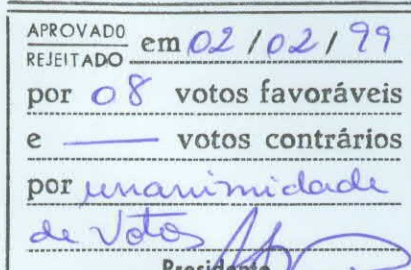 APROVADO
REJEITADO em 02/02/99
por 08 votos favoráveis
e — votos contrários
por unanimidade
de Votos
Presidente